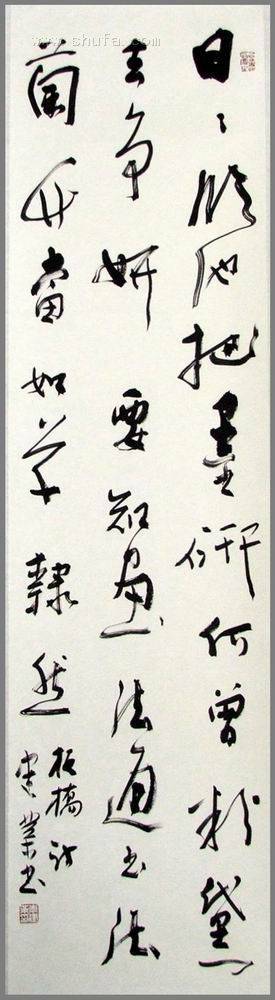 www.shufa.com
日々临池把墨研何曾粉黛
去争妍要知画法通书法
蘭竹當如草隸然
板橋诗
業书